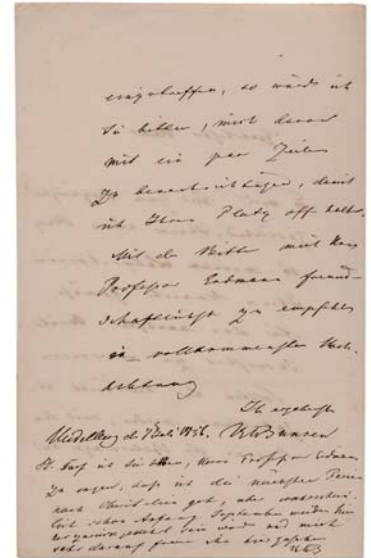 eingetroffen, so würde ich
Sie bitten, mich davon
mit ein paar Zeilen
zu benachrichtigen, damit
ich Ihren Platz off halte.
Mit der Bitte mich Herrn
Professor Erdmann freund-
schaftlichst zu empfehlen
in vollkommenster Hoch-
achtung
Ihr ergebenster
Heidelberg d. 7 Juli 1856. RWBunsen
Darf ich Sie bitten, Herrn Professor Erdmann
zu sagen, daß ich die nächsten Ferien
nach geh, aber wahrschein-
lich schon Anfang September wieder hier
sein werde und mich
sehr darauf freue ihn hier zu sehen